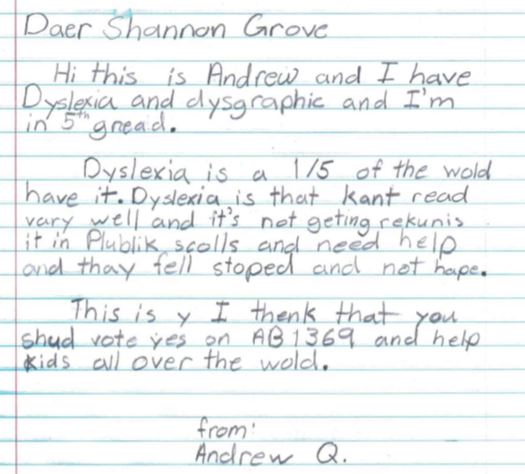 Daer Shannon Grove
Hi this is Andrew and I have
Dyslexia and dysgraphic and I'm
in 5th gread.
Dyslexia is a 1/5 of the wold
have it. Dyslexia is that kant read
vary well and it's not geting rekunis
it in Plublik scolls and need help
and thay fell stoped and not hape.
This is y I thenk that you
shud vote yes on AB1369 and help
kids all over the wold.
from:
Andrew Q.